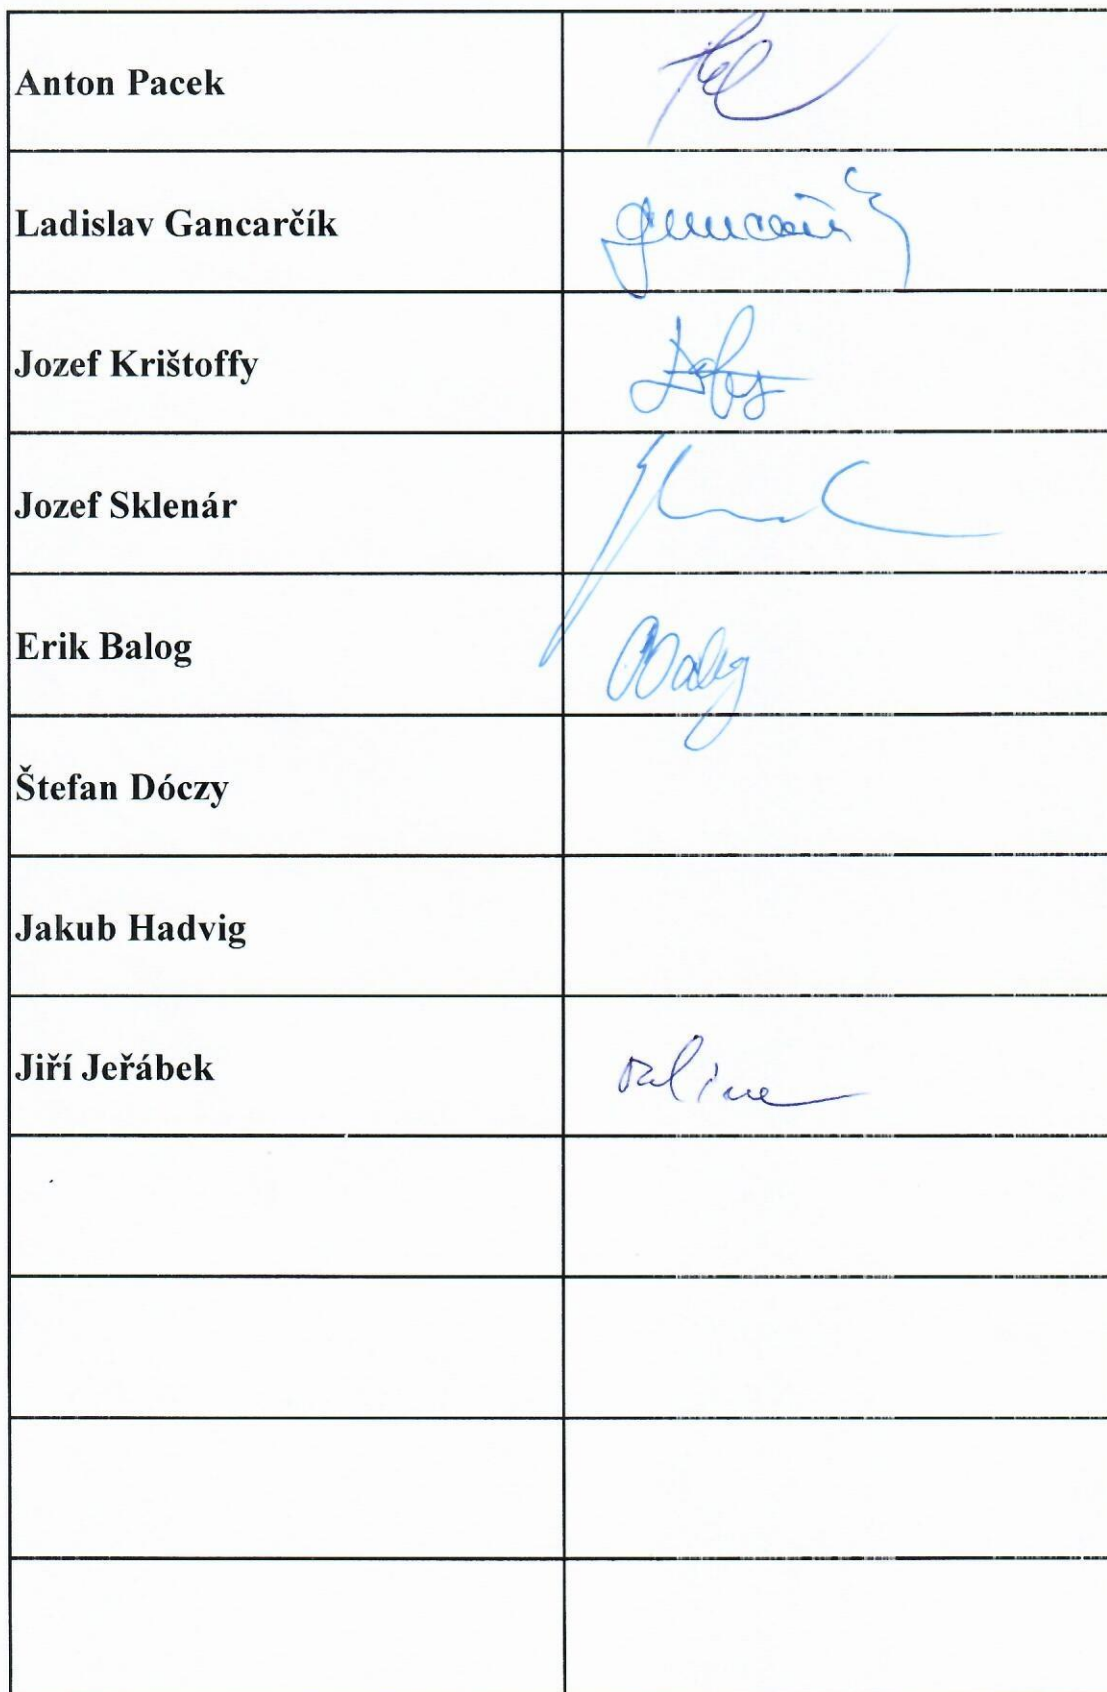 Anton Pacek
Ladislav Gancarčík
Jozef Krištoffy
Jozef Sklenár
Erik Balog
Štefan Dóczy
Jakub Hadvig
Jiří Jeřábek